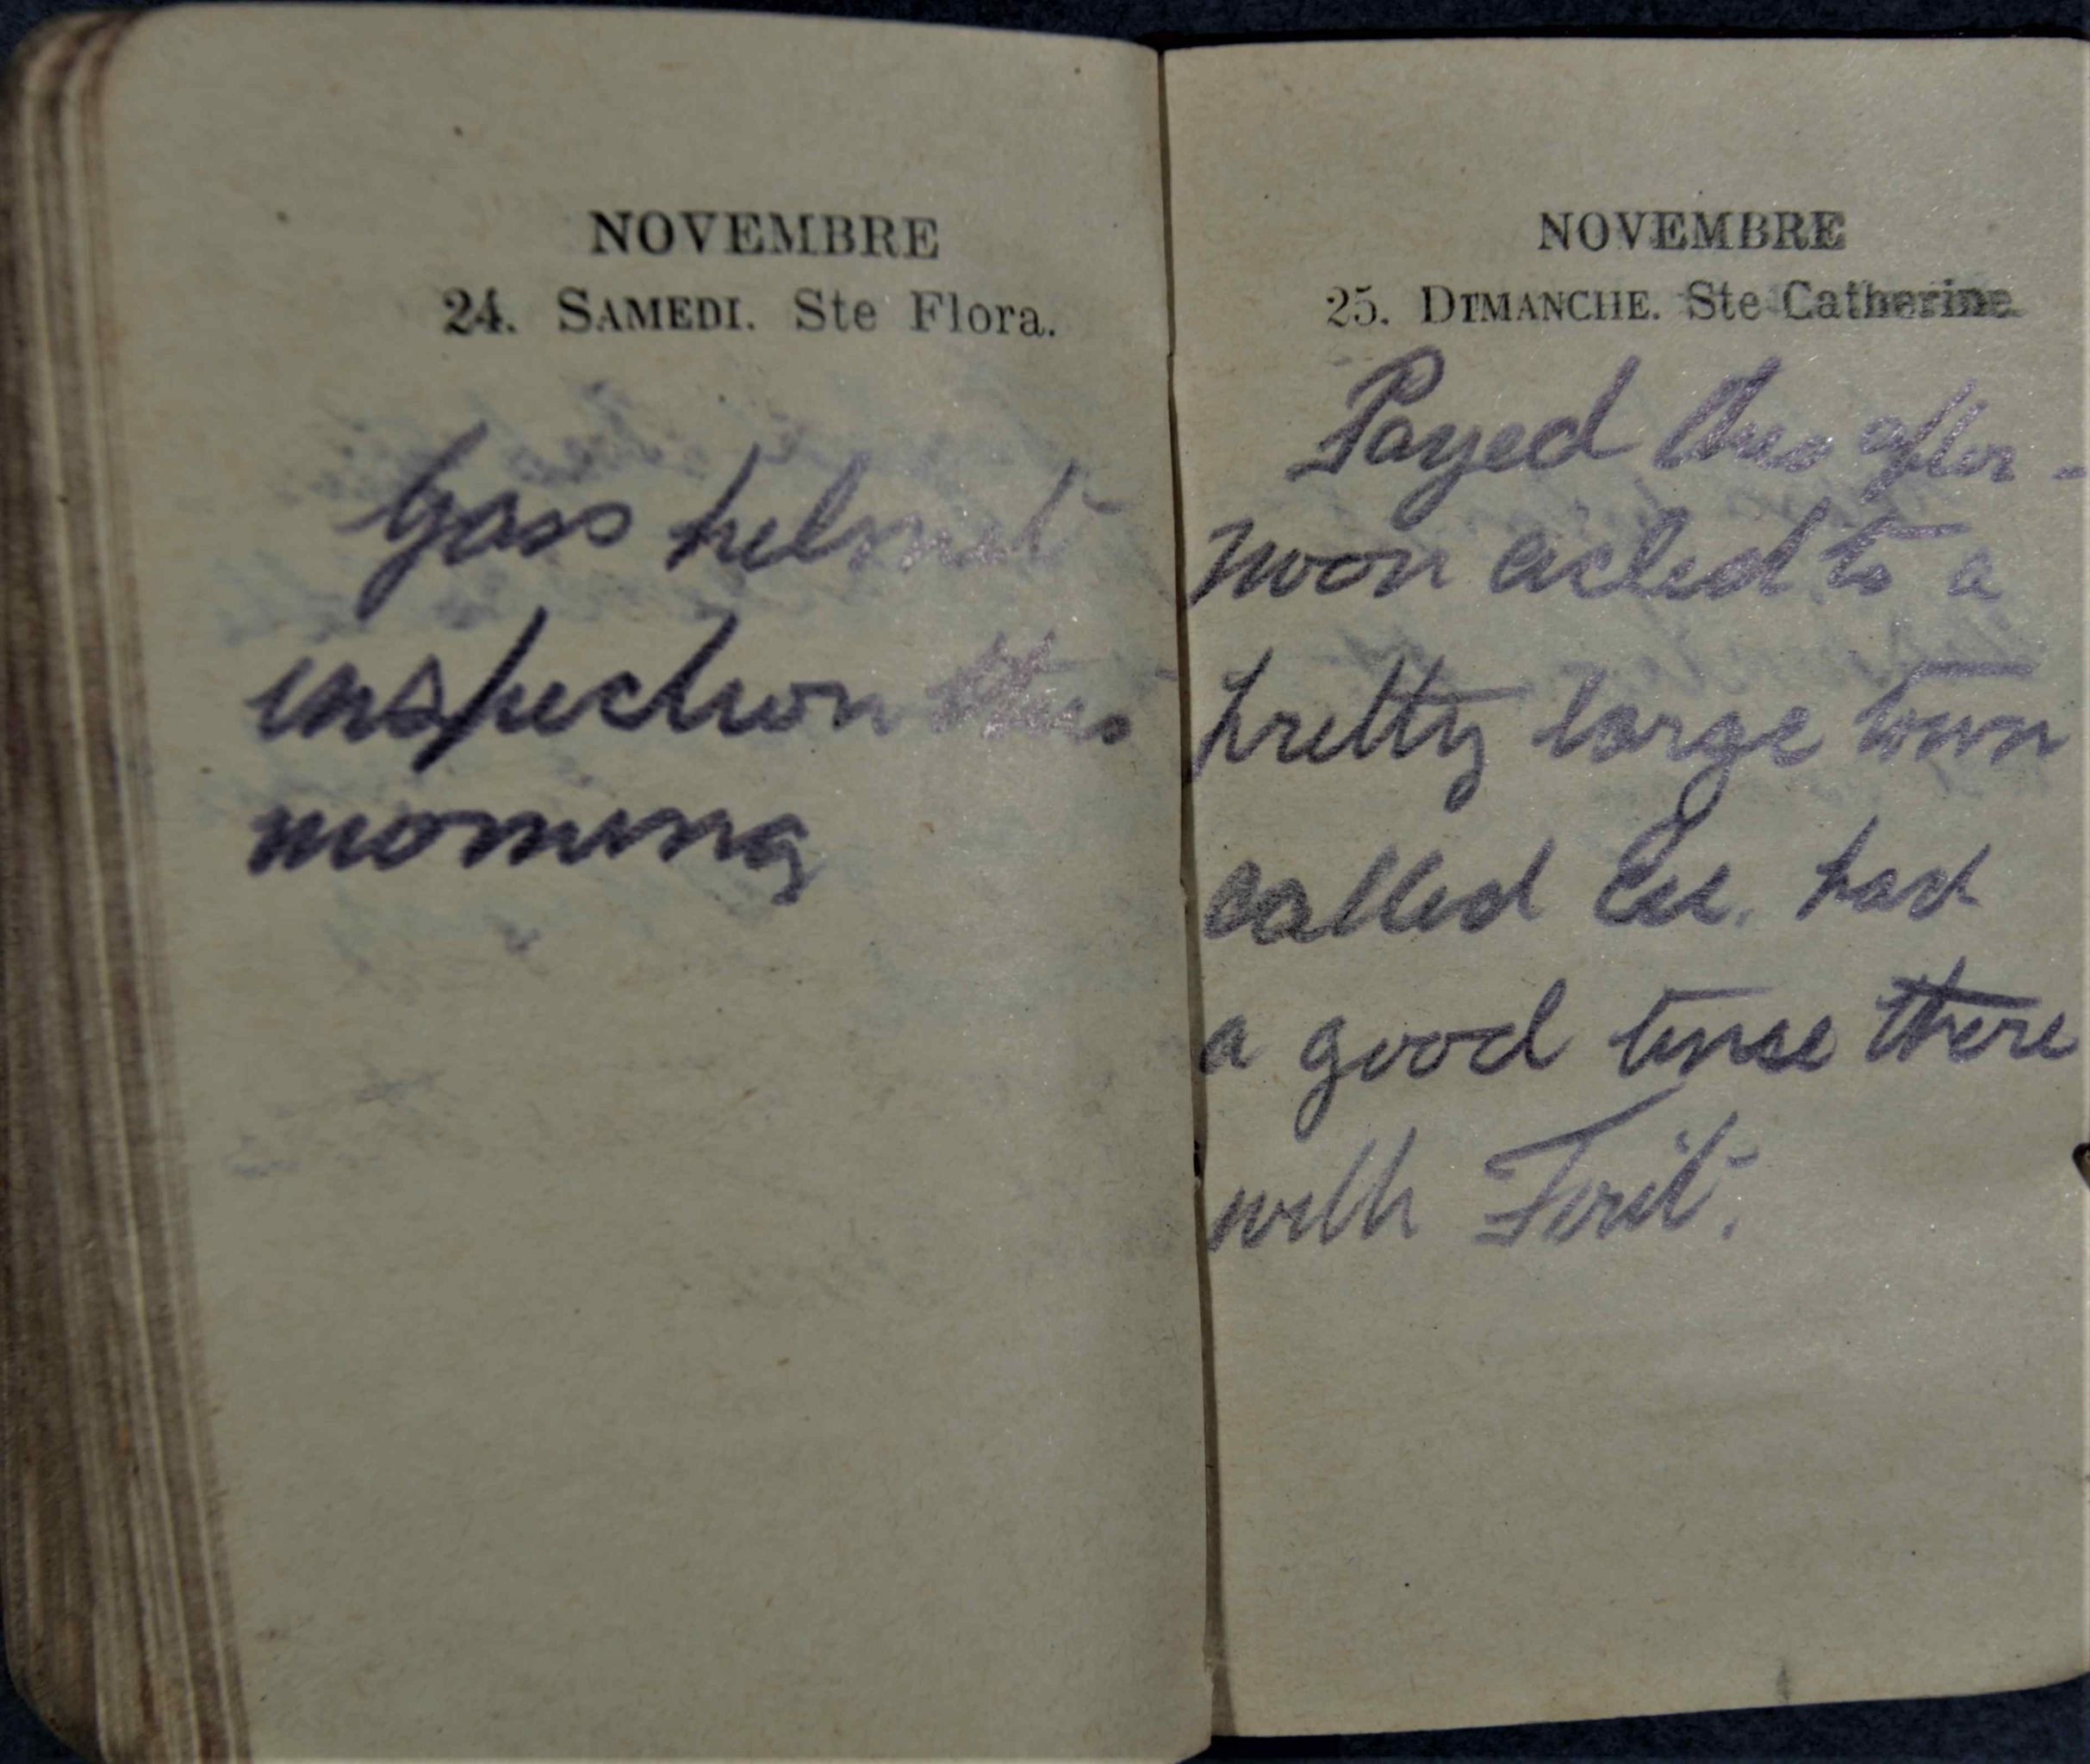 NOVEMBRE
24. SAMEDI. Ste Flora.
Gass helmet
inspection this
morning
NOVEMBRE
25. DIMANCHE. Ste Catherine
Payed this after-
noon cicled to a
pretty large town
called Eu. had
a good time there
with